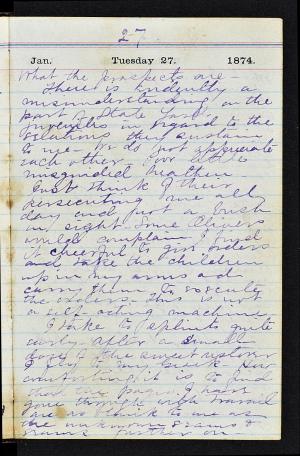 27
Jan. Tuesday 27. 1874.
What the prospects are —
There is evidently a
misunderstanding on the
part of State Card
Juveniles in regard to the
relations they sustain
to me. We do not appreciate
each other. Poor little
misguided heathen
Just think of their
persecuting me all
day and not a bush
in sight. Some drivers
would complain. I find
it cheerful to give orders
and take the children
up in my arms and
carry them to execute
the orders. This is not
a self-acting machine
I take to splints quite
early after a small
dose of the sweet restorer
I fly to my work. How
comforting it is to find
that the pages I have
gone through with travail
are as blank to me as
the unknown exams &
further on